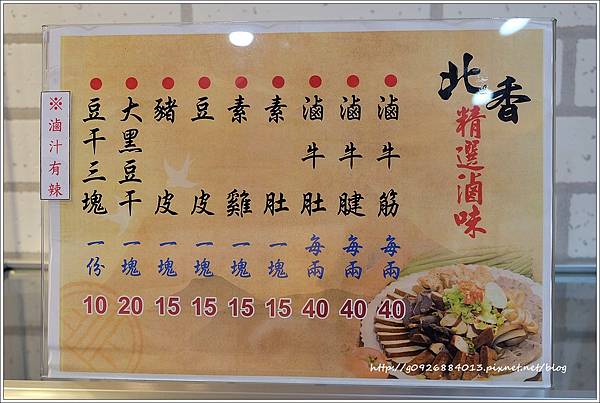 北香
精選滷味
滷牛筋 每兩 40
滷牛腱 每兩 40
滷牛肚 每兩 40
素肚 一塊 15
素雞 一塊 15
豆皮 一塊 15
豬皮 一塊 15
大黑豆干 一塊 20
豆干三塊 一份 10
※滷汁有辣
http://g0926884013.pixnet.net/blog